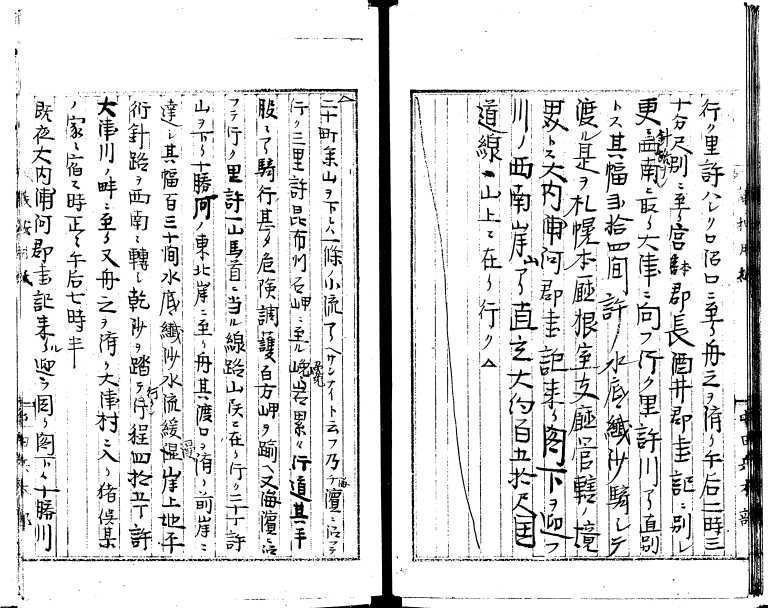 行ク里許ハシクロ沼口ニ至ル舟之ヲ済リ午后二時三
十分尺別ニ至ル宮本郡長酒井郡書記ニ別レ
更ニ針路ヲ西南ニ取リ大津ニ向フ行ク里許川アリ直別
トス其幅弐拾四間許ノ水底ヲ繊沙騎シテ
渡ル是ヲ札幌本廳根室支廳管轄ノ境
界トス大内浦河郡書記来リ閣下ヲ迎フ
川ノ西南岸山アリ直立大約百五拾尺国
道線ハ山上ニ在リ行クΔ
Δ二十町余山ヲ下ル一條ノ小流アリ乃チ海濱ニ沿フテ
行ク三里許昆布刈石岬ニ至ル巉岩累々行道其半
股ニアリ騎行甚タ危険調護百方岬ヲ踰ヘ又海濱ニ沿
フテ行ク里許一山馬首ニ当ル線路山尻ニ在リ行ク二十丁許
山ヲ下リ十勝河ノ東北岸ニ至ル舟其渡口ヲ済リ前岸ニ
達ル其幅百三十間水底繊沙水流緩漫岸上地平
衍針路ヲ西南ニ轉シ乾沙ヲ踏テ行ク行程四拾五丁許
大津川ノ畔ニ至ル又舟之ヲ済リ大津村ニ入リ猪俣某
ノ家ニ宿ス時正ニ午后七時半
既夜大内浦河郡書記来ル迎ヲ因リ閣下ハ十勝川